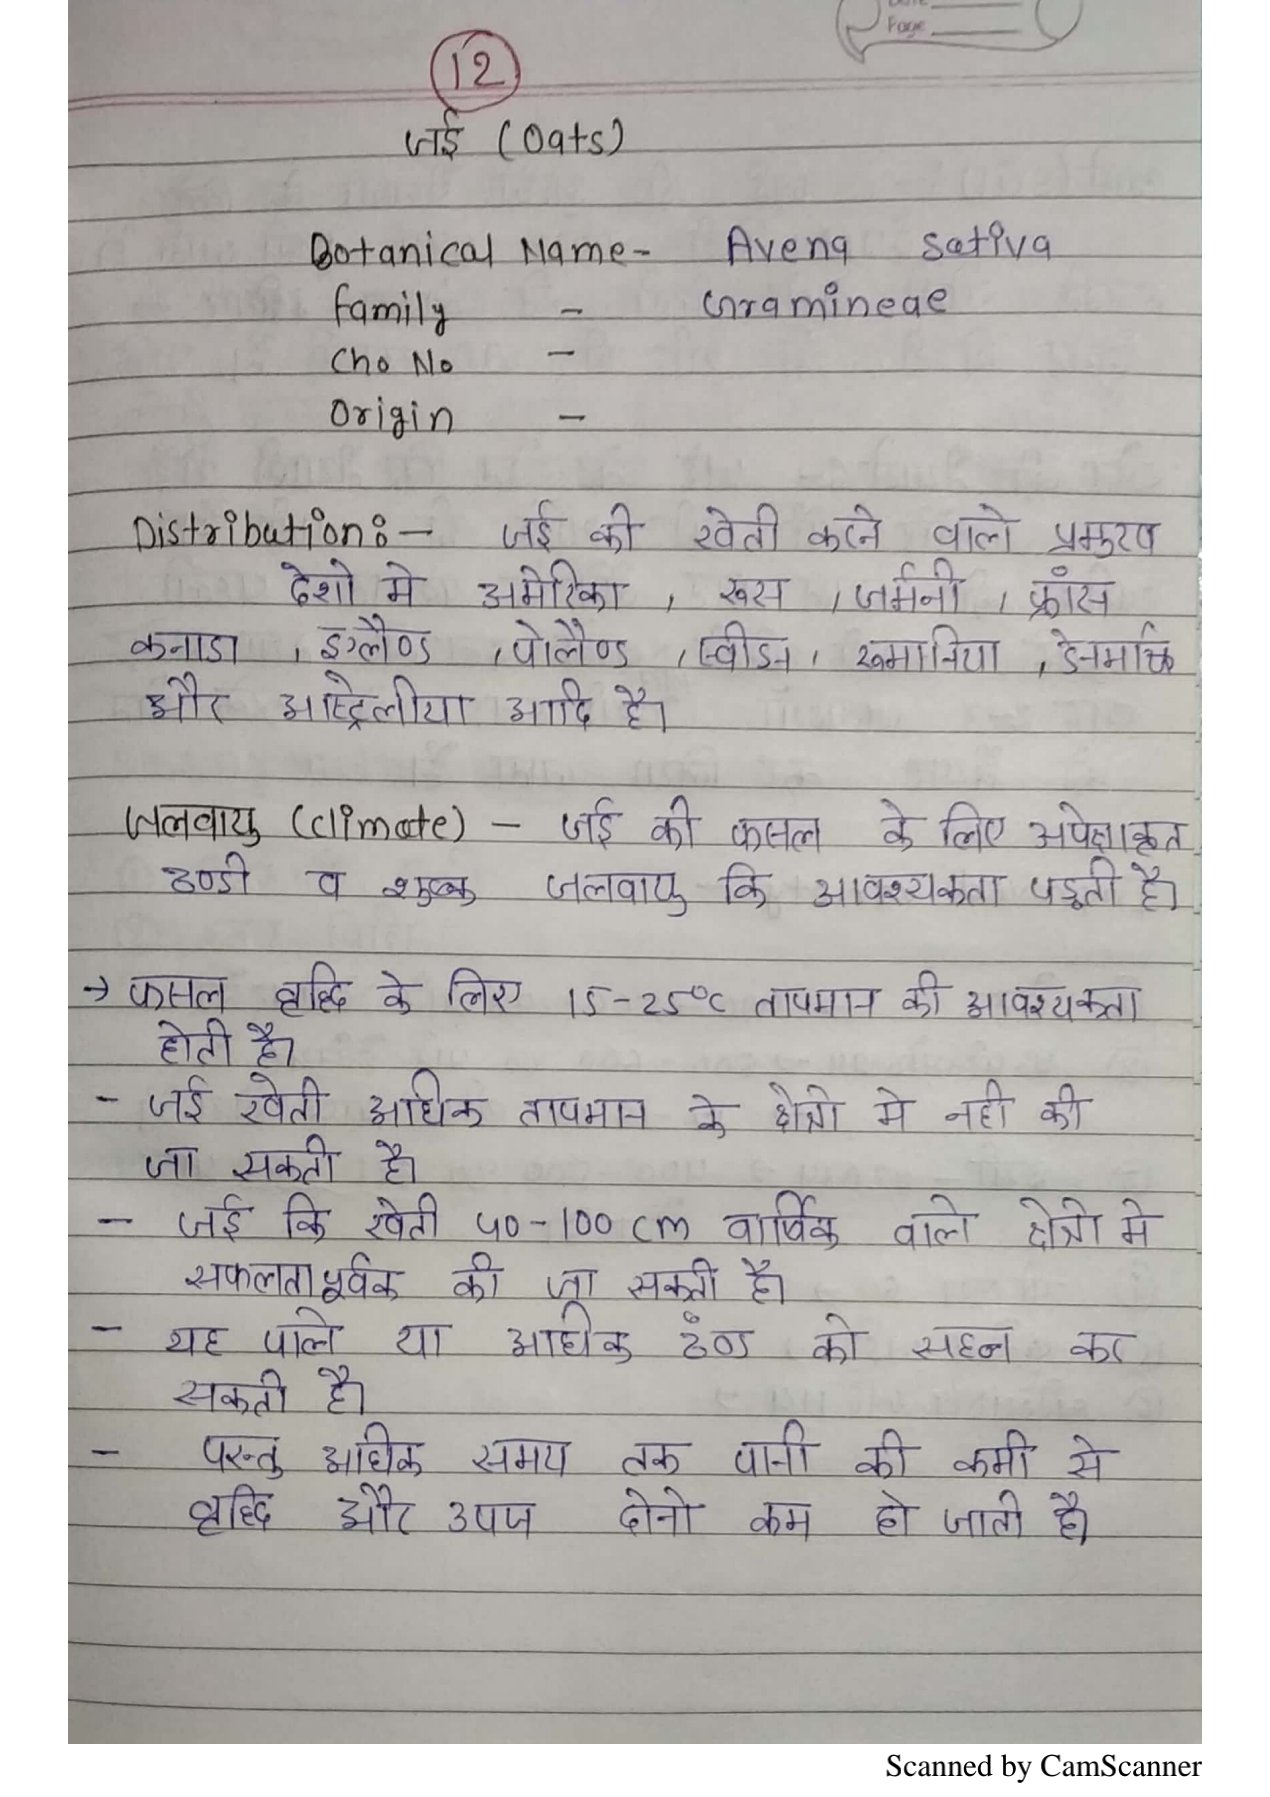 Page
12
जई (Oats)
Botanical Name- Avena Sativa
family - Gramineae
Cho No -
Origin -
Distribution:- जई की खेती करने वाले प्रमुख
देशो मे अमेरिका , रूस , जर्मनी , फ्रांस
कनाडा , इग्लैण्ड , पोलैण्ड , स्वीडन , रूमानिया , डेनमार्क
और आस्ट्रेलीया आदि है।
जलवायु (climate) - जई की फसल के लिए अपेक्षाकृत
ठण्डी व शुष्क जलवायु कि आवश्यकता पड़ती है।
→ फसल वृद्धि के लिए 15-25°C तापमान की आवश्यकता
होती है।
- जई खेती अधिक तापमान के क्षेत्रो मे नही की
जा सकती है।
- जई कि खेती 40-100 cm वार्षिक वाले क्षेत्रो मे
सफलतापूर्वक की जा सकती है।
- यह पाले या अधिक ठंण्ड को सहन कर
सकती है।
- परन्तु अधिक समय तक पानी की कमी से
वृद्धि और उपज दोनो कम हो जाती है।
Scanned by CamScanner